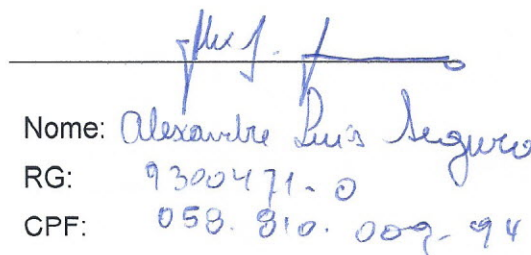 Nome: Alexandre Luis Seguro
RG: 9300471-0
CPF: 058.810.009-94